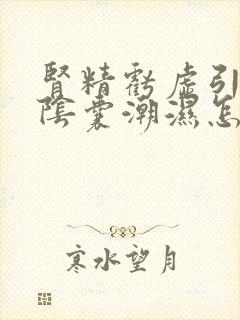 腎精虧虛引
陰囊潮濕怎
寒水望月